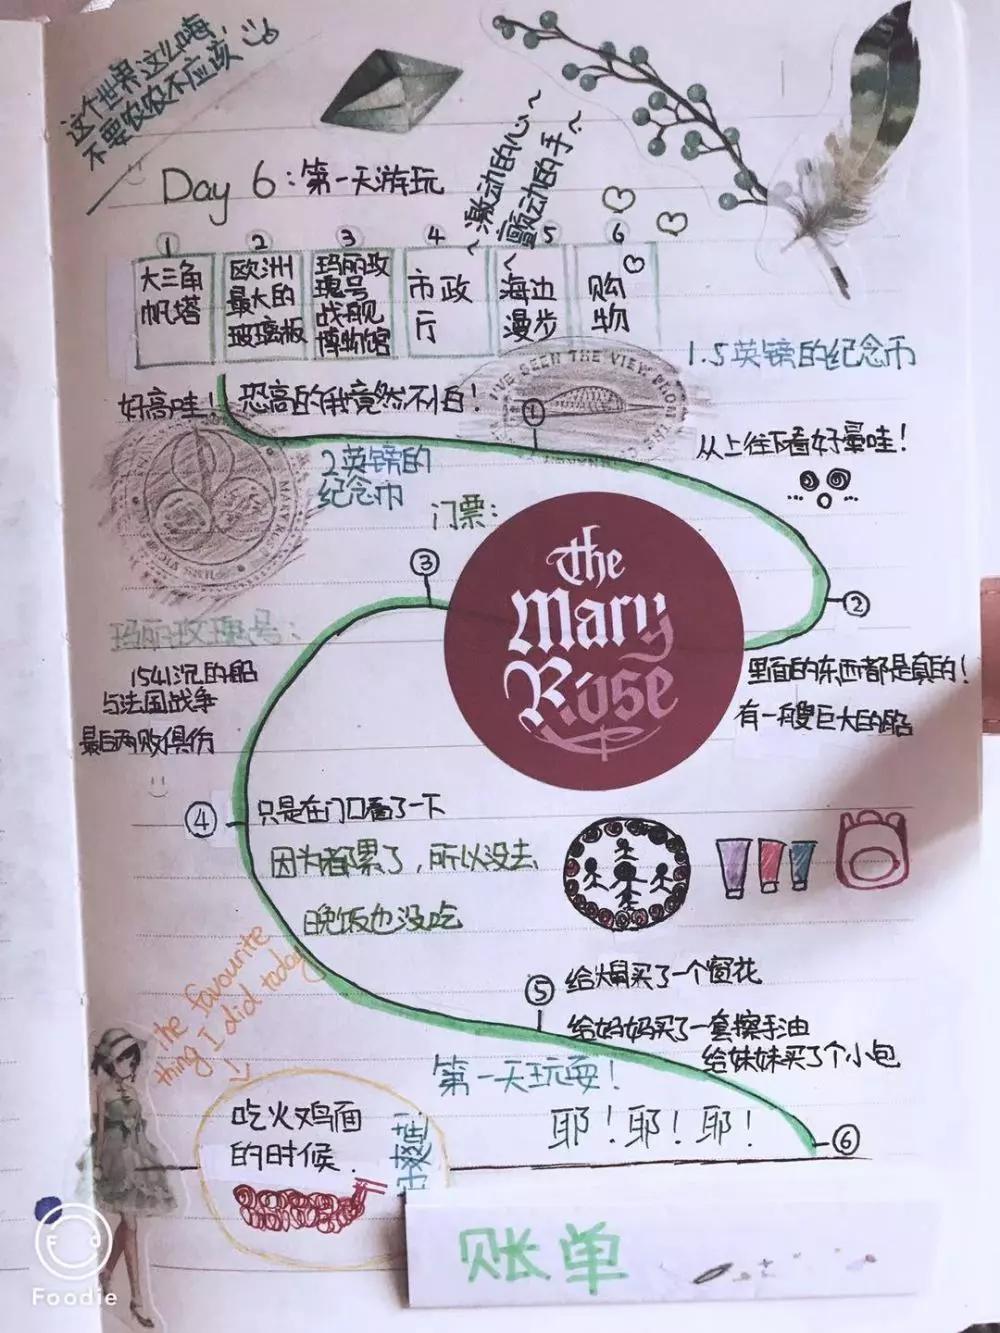 这个世界这么嗨，
不要农农不应该
Day 6：第一天游玩
~激动的心~
~颤动的手~
1 2 3 4 5 6
大三角
帆塔
欧洲
最大的
玻璃板
玛丽玫
瑰号
战舰
博物馆
市政
厅
海边
漫步
购
物
1.5英镑的纪念币
好高哇！恐高的我竟然不怕！
I'VE SEEN THE VIEW FROM THE
①
从上往下看好晕哇！
2英镑的
纪念币
MARY
门票：
③
the
Mary
Rose
②
玛丽玫瑰号：
1541沉的船
与法国战争
最后两败俱伤
里面的东西都是真的！
有一艘巨大的船
④
只是在门口看了一下
因为都累了，所以没去
晚饭也没吃
the favourite
thing I did today
⑤
给买了一个窗花
给妈妈买了一套擦手油
给妹妹买了个小包
第一天玩耍！
耶！耶！耶！
⑥
吃火鸡面
的时候.
账单
Foodie